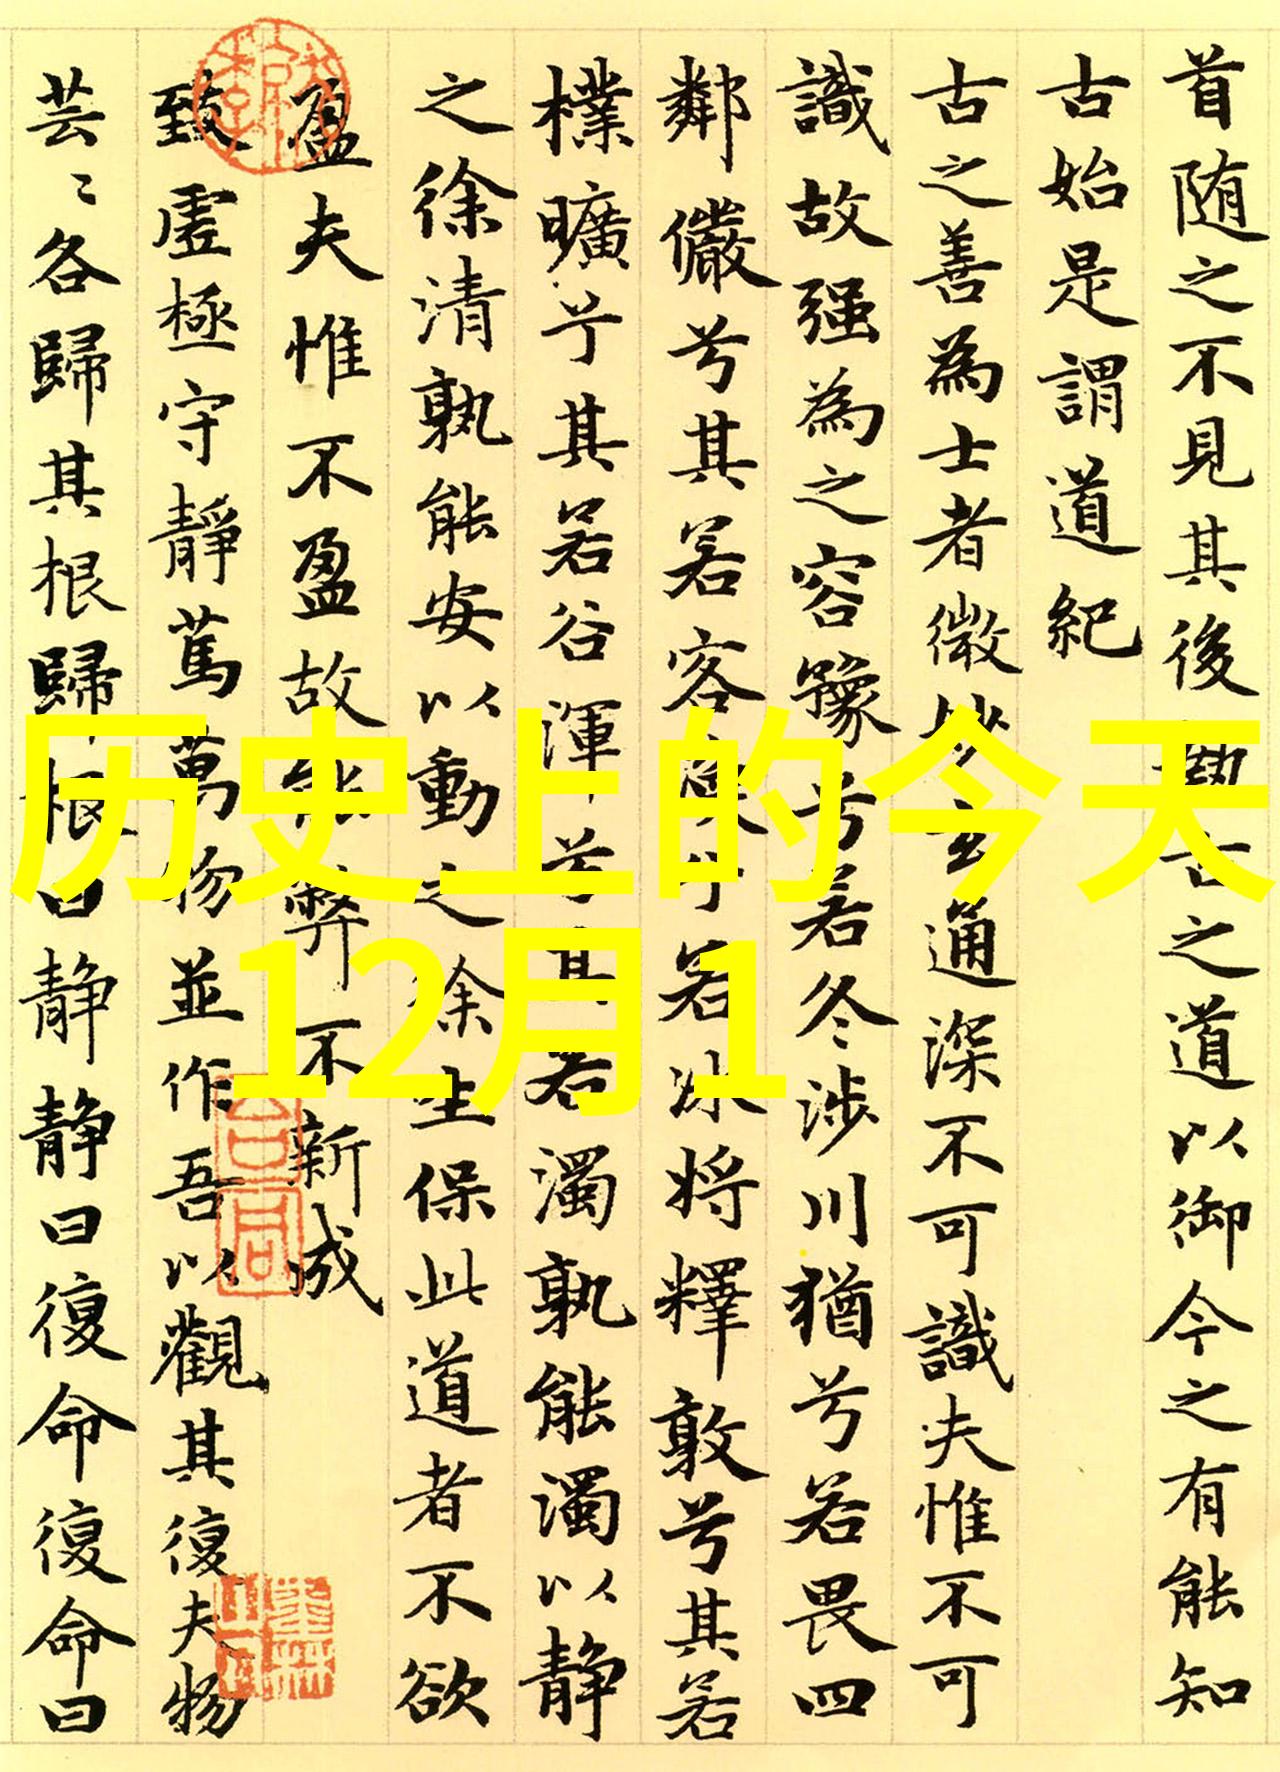 首随之不見其後執古之道以御今之有能知
古始是謂道紀
古之善為士者微妙玄通深不可識夫惟不可
識故强為之容豫兮若冬涉川猶兮若畏四
鄰儼兮其若客渙兮若冰将釋敦兮其若
樸曠兮其若谷渾兮其若濁孰能濁以静
之徐清孰能安以動之徐生保此道者不欲
盈夫惟不盈故能弊不新成
致虚極守靜篤萬物並作吾以觀其復夫物
芸〻各歸其根歸根曰静静曰復命復命曰
历史上的今天
12月1